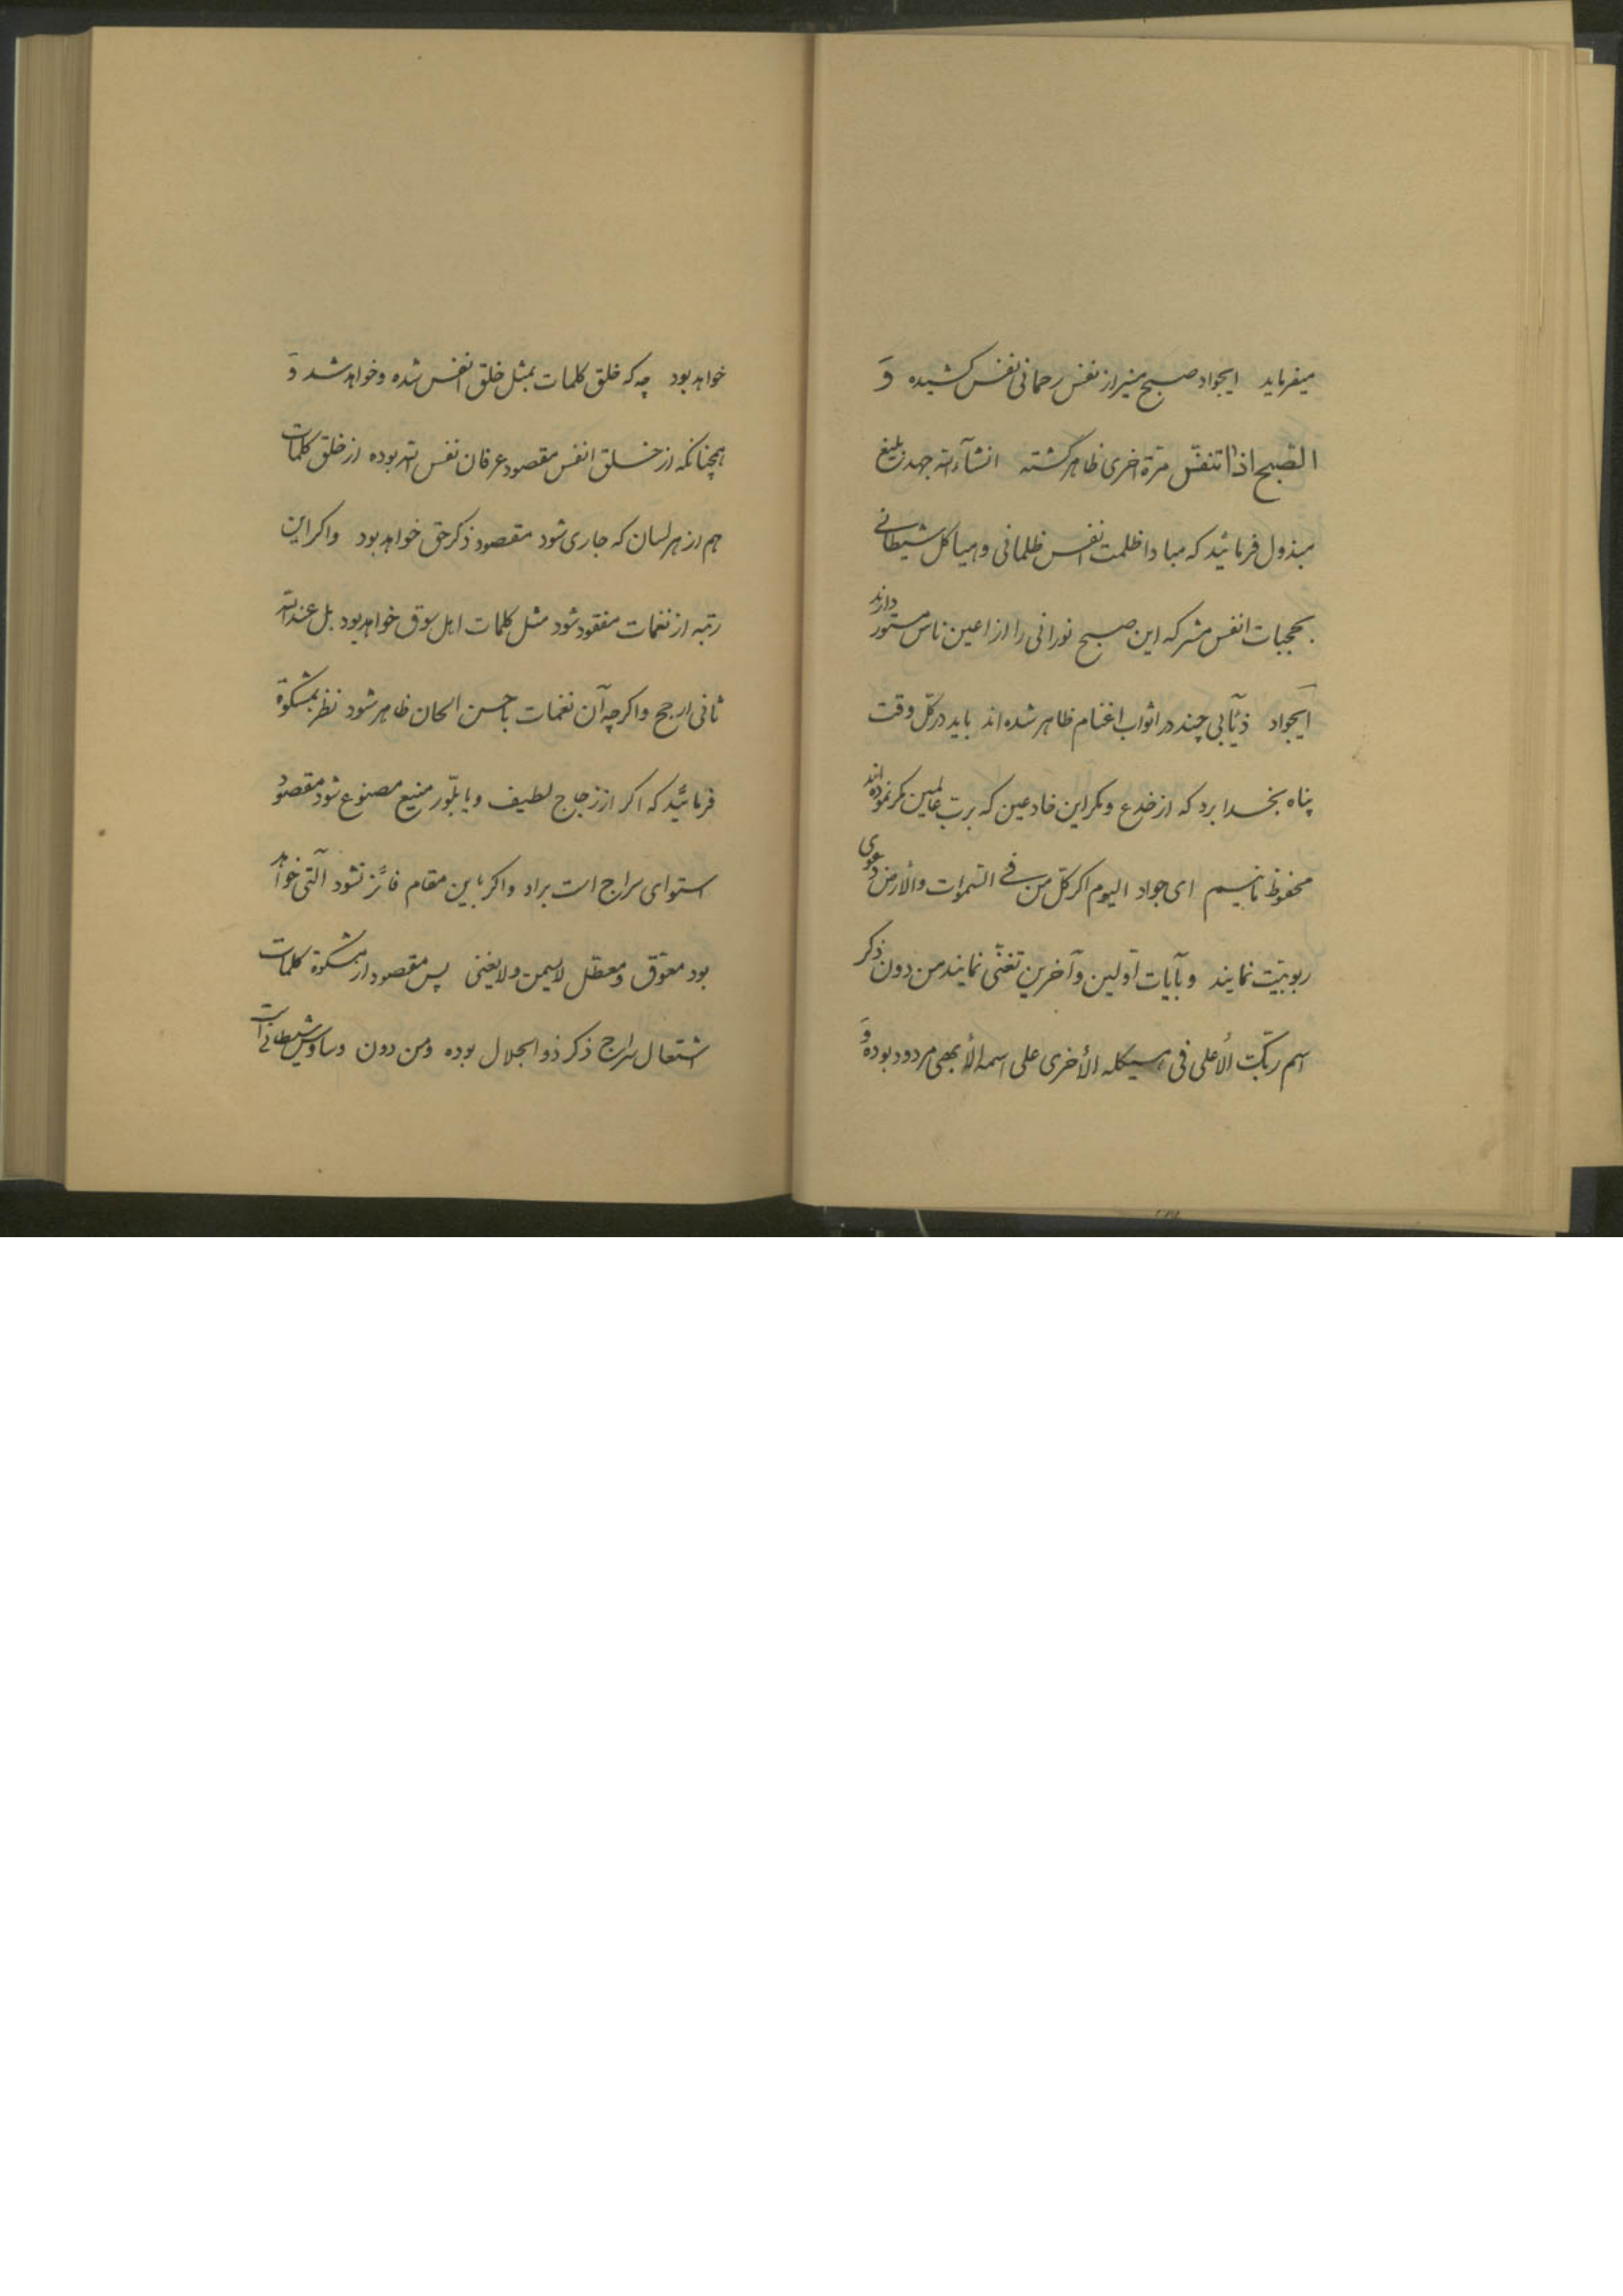 میفرماید ایجواد صبح منیر از نفس رحمانی نفس کشیده وَ
الصّبح اذا تنفّس مرّة اخری ظاهر گشته انشآءالله جهد بلیغ
مبذول فرمائید که مبادا ظلمت انفس ظلمانی و هیاکل شیطانی
بحجبات انفس مشرکه این صبح نورانی را از اعین ناس مستور دارند
ایجواد ذئآبی چند در اثواب اغنام ظاهر شده‌اند باید در کلّ وقت
پناه بخدا برد که از خدع و مکر این خادعین که بربّ عالمین مکر نموده‌اند
محفوظ مانیم ای جواد الیوم اگر کلّ من فی السّموات والأرض دعوی
ربوبیّت نمایند و بآیات اوّلین و آخرین تغنّی نمایند من دون ذکر
اسم ربّک الأعلی فی هیکله الأخری علی اسمه الأبهی مردود بوده وَ
خواهد بود چه که خلق کلمات بمثل خلق انفس شده و خواهد شد وَ
همچنانکه از خلق انفس مقصود عرفان نفس الله بوده از خلق کلمات
هم از هر لسان که جاری شود مقصود ذکر حق خواهد بود و اگر این
رتبه از نغمات مفقود شود مثل کلمات اهل سوق خواهد بود بل عندالله
ثانی ارجح و اگرچه آن نغمات باحسن الحان ظاهر شود نظر بمشکوة
فرمائید که اگر از زجاج لطیف و یا بلّور منیع مصنوع شود مقصود
استوای سراج است براو و اگر باین مقام فائز نشود آلتی خواهد
بود معوّق و معطّل لایسمن ولایغنی پس مقصود از مشکوة کلمات
اشتعال سراج ذکر ذوالجلال بوده و من دون وساوس شیطانی